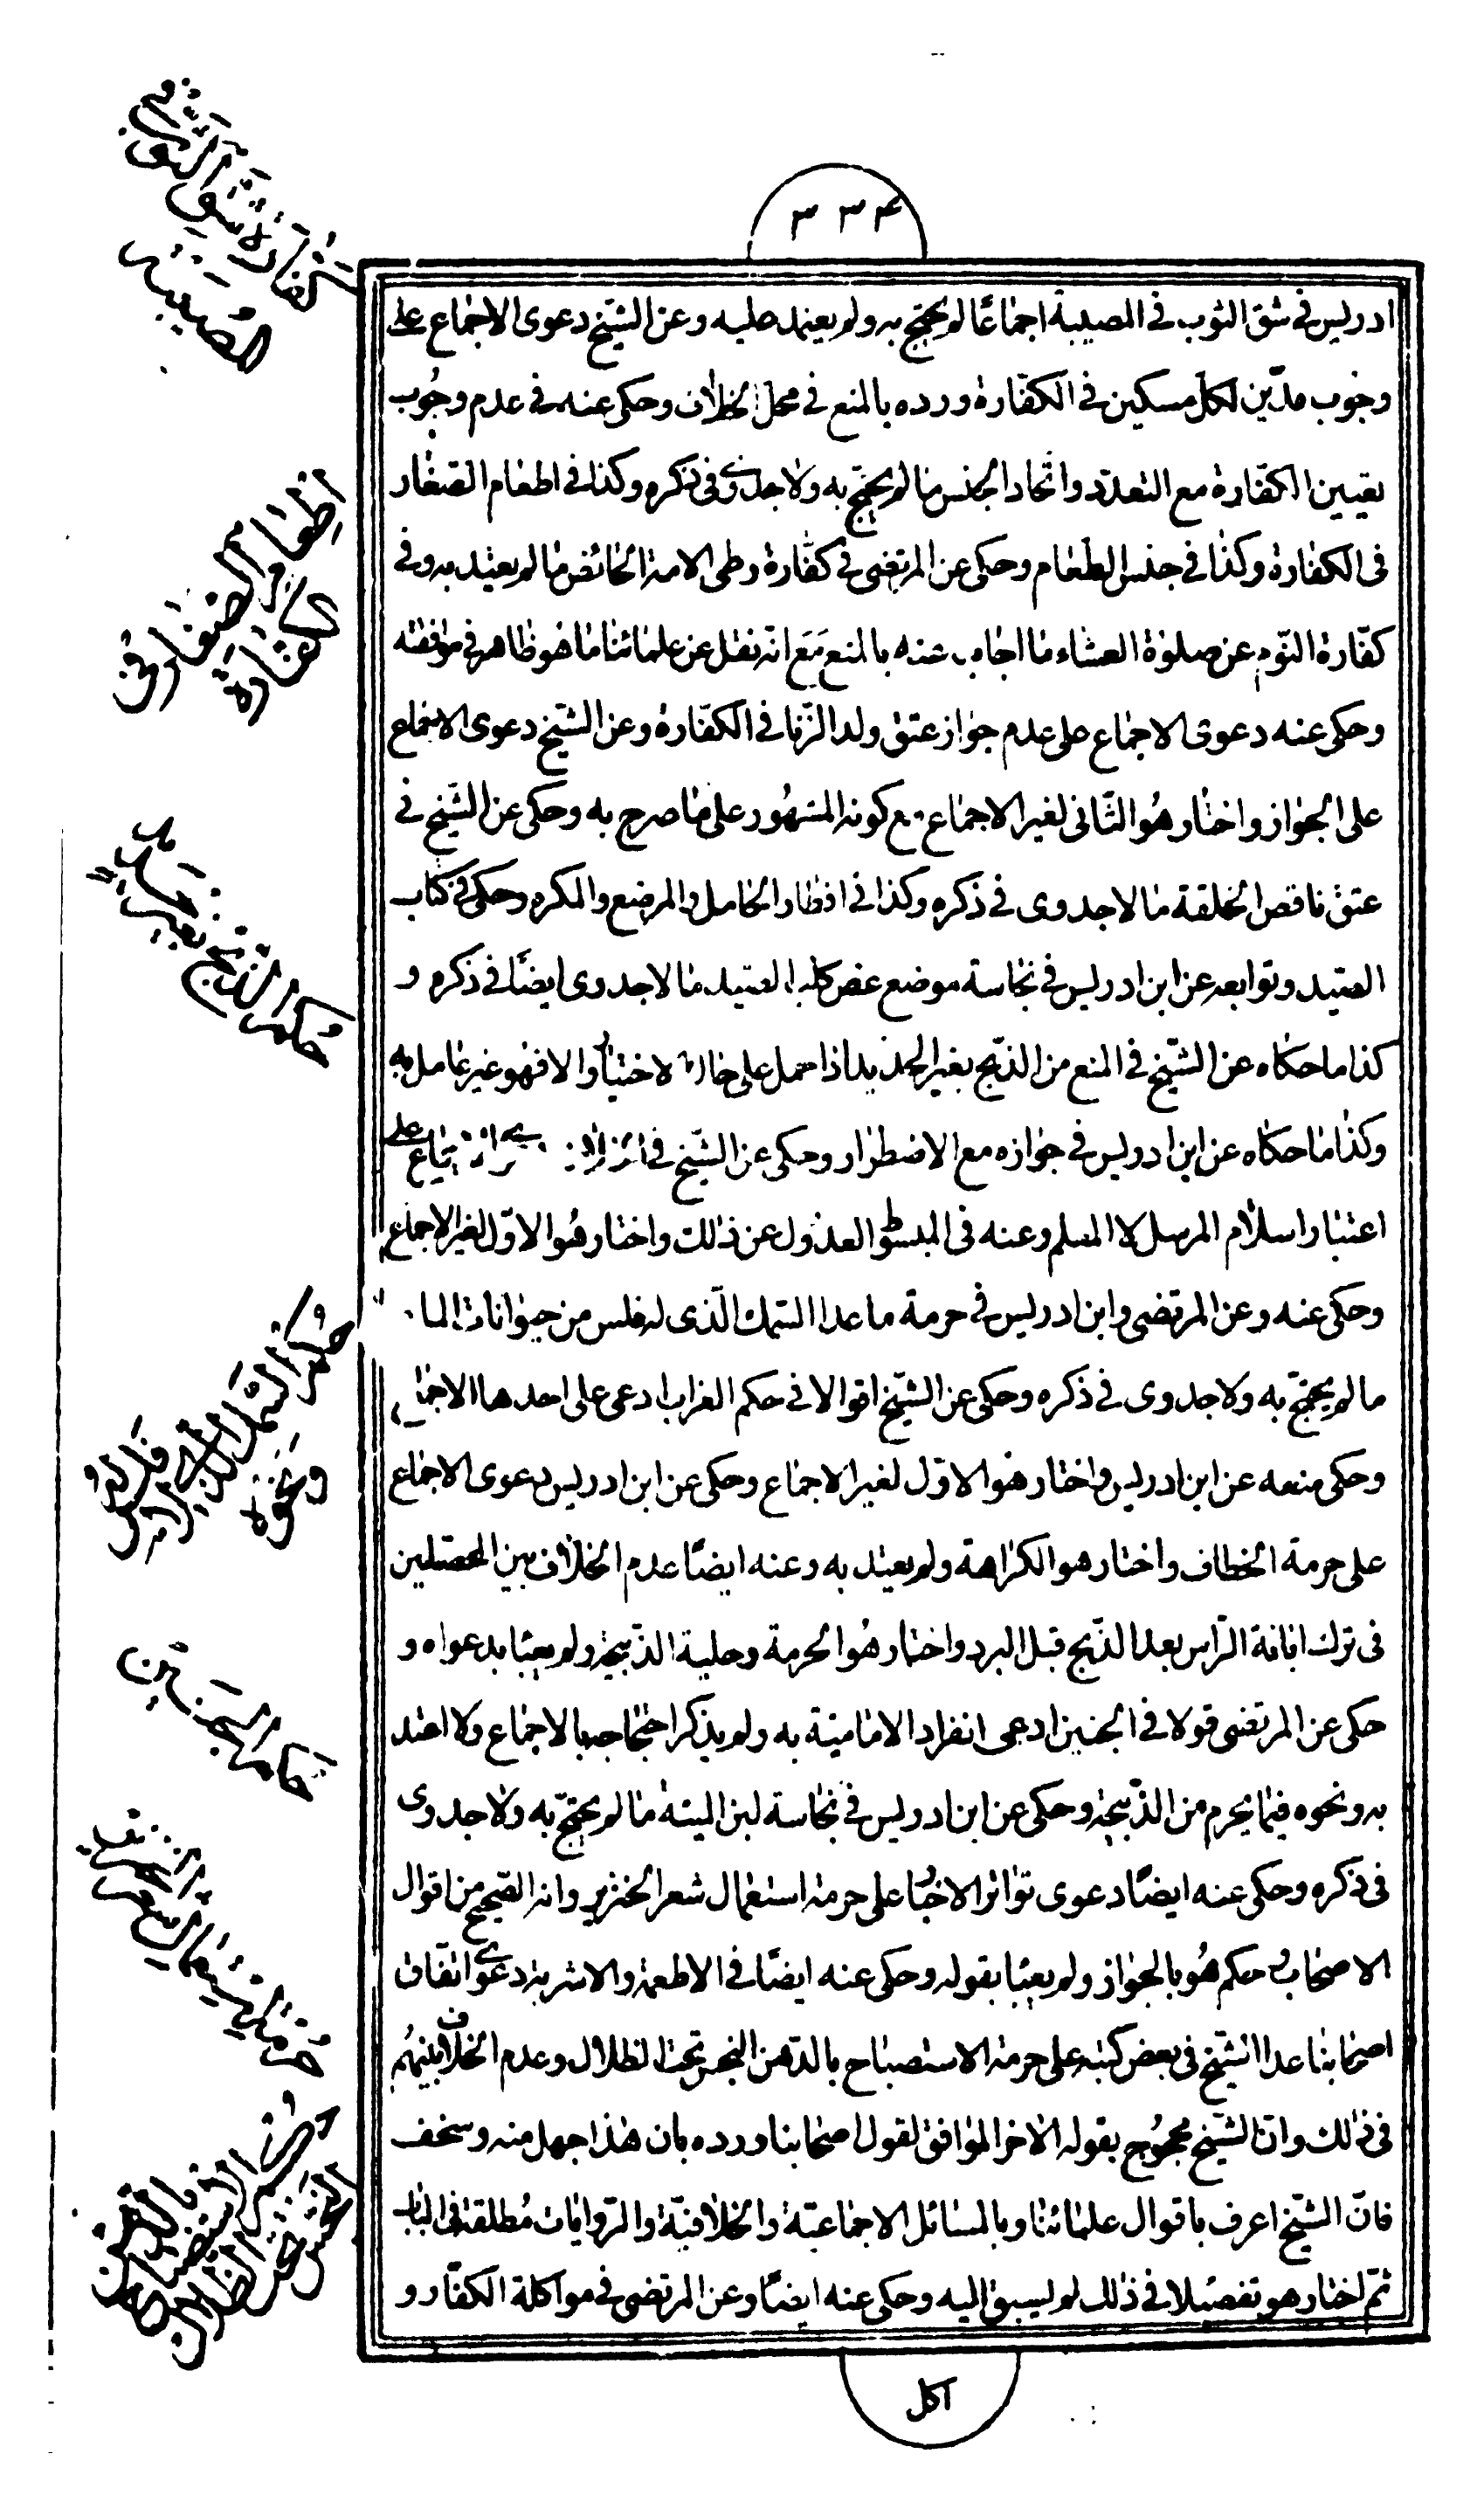 ٣٣٤
ادريس فى شق الثوب فى المصيبة اجماعًا لم يحتج به ولم يعتمد عليه وعن الشيخ دعوى الاجماع على
وجوب مدّين لكل مسكين فى الكفارة ورده بالمنع فى محل الخلاف وحكى عنه فى عدم وجُوب
تعيين الكفّارة مع التعدد واتحاد الجنس ما لم يحتج به ولا جدوى فى ذكره وكذا فى اطعام الصغار
فى الكفارة وكذا فى جنس الطعام وحكى عن المرتضى فى كفّارة وطى الامة الحائض ما لم يعتد به وفى
كفّارة النّوم عن صلوة العشاء ما اجاب عنه بالمنع مَعَ انه نقل عن علمائنا ما هو ظاهر فى موافقته
وحكى عنه دعوى الاجماع على عدم جواز عتق ولد الزّنا فى الكفّارة وعن الشيخ دعوى الاجماع
على الجواز واختار هُو الثانى لغير الاجماع مع كونه المشهُور على ما صرح به وحكى عن الشّيخ فى
عتق ناقص الخلقة ما لا جدوى فى ذكره وكذا فى افطار الحامل والمرضع والمكره وحكى فى كتاب
الصّيد وتوابعه عن ابن ادريس فى نجاسة موضع عض كلب الصّيد ما لا جدوى ايضًا فى ذكره و
كذا ما حكاه عن الشّيخ فى المنع من الذّبح بغير الحديد اذا حمل على حال الاختيار والا فهو غير عامل به
وكذا ما حكاه عن ابن ادريس فى جوازه مع الاضطرار وحكى عن الشّيخ فى على
اعتبار اسلام المرسل لا المعلم وعنه فى المبسوط العدول عن ذلك واختار هُو الاوّل لغير الاجماع
وحكى عنه وعن المرتضى وابن ادريس فى حرمة ما عدا السّمك الّذى له فلس من حيوانات الماء
ما لم يحتج به ولا جدوى فى ذكره وحكى عن الشّيخ اقوالا فى حكم الغراب ادعى على احدها الاجماع
وحكى منعه عن ابن ادريس واختار هُو الاوّل لغير الاجماع وحكى عن ابن ادريس دعوى الاجماع
على حرمة الخطاف واختار هو الكراهة ولم يعتد به وعنه ايضًا عدم الخلاف بين المحصّلين
فى ترك ابانة الرّاس بعد الذّبح قبل البرد واختار هُو الحرمة وحلية الذّبيحة ولم يعبا بدعواه و
حكى عن المرتضى قولا فى الجنين ادعى انفراد الامامية به ولم يذكر احتجاجه بالاجماع ولا اعتد
به ونحوه فيما يحرم من الذّبيحة وحكى عن ابن ادريس فى نجاسة لبن الميتة ما لم يحتج به ولا جدوى
فى ذكره وحكى عنه ايضًا دعوى تواتر الاخبار على حرمة استعمال شعر الخنزير وانه الصّحيح من اقوال
الاصحاب وحكم هُو بالجواز ولم يعبا بقوله وحكى عنه ايضًا فى الاطعمة والاشربة دعوى اتفاق
اصحابنا عدا الشّيخ فى بعض كتبه على حرمة الاستصباح بالدّهن النجس تحت الظلال وعدم الخلاف بينهُم
فى ذلك وانّ الشّيخ محجُوج بقوله الاخر الموافق لقول اصحابنا ورده بان هذا جهل منه وسخف
فانّ الشّيخ اعرف باقوال علمائنا وبالمسائل الاجماعيّة والخلافيّة والرّوايات مُطلقة فى الباب
ثمّ اختار هو تفصيلا فى ذلك لم يسبق اليه وحكى عنه ايضًا وعن المرتضى فى مواكلة الكفّار و
اكل
اطعام الصغار فى
الكفارة